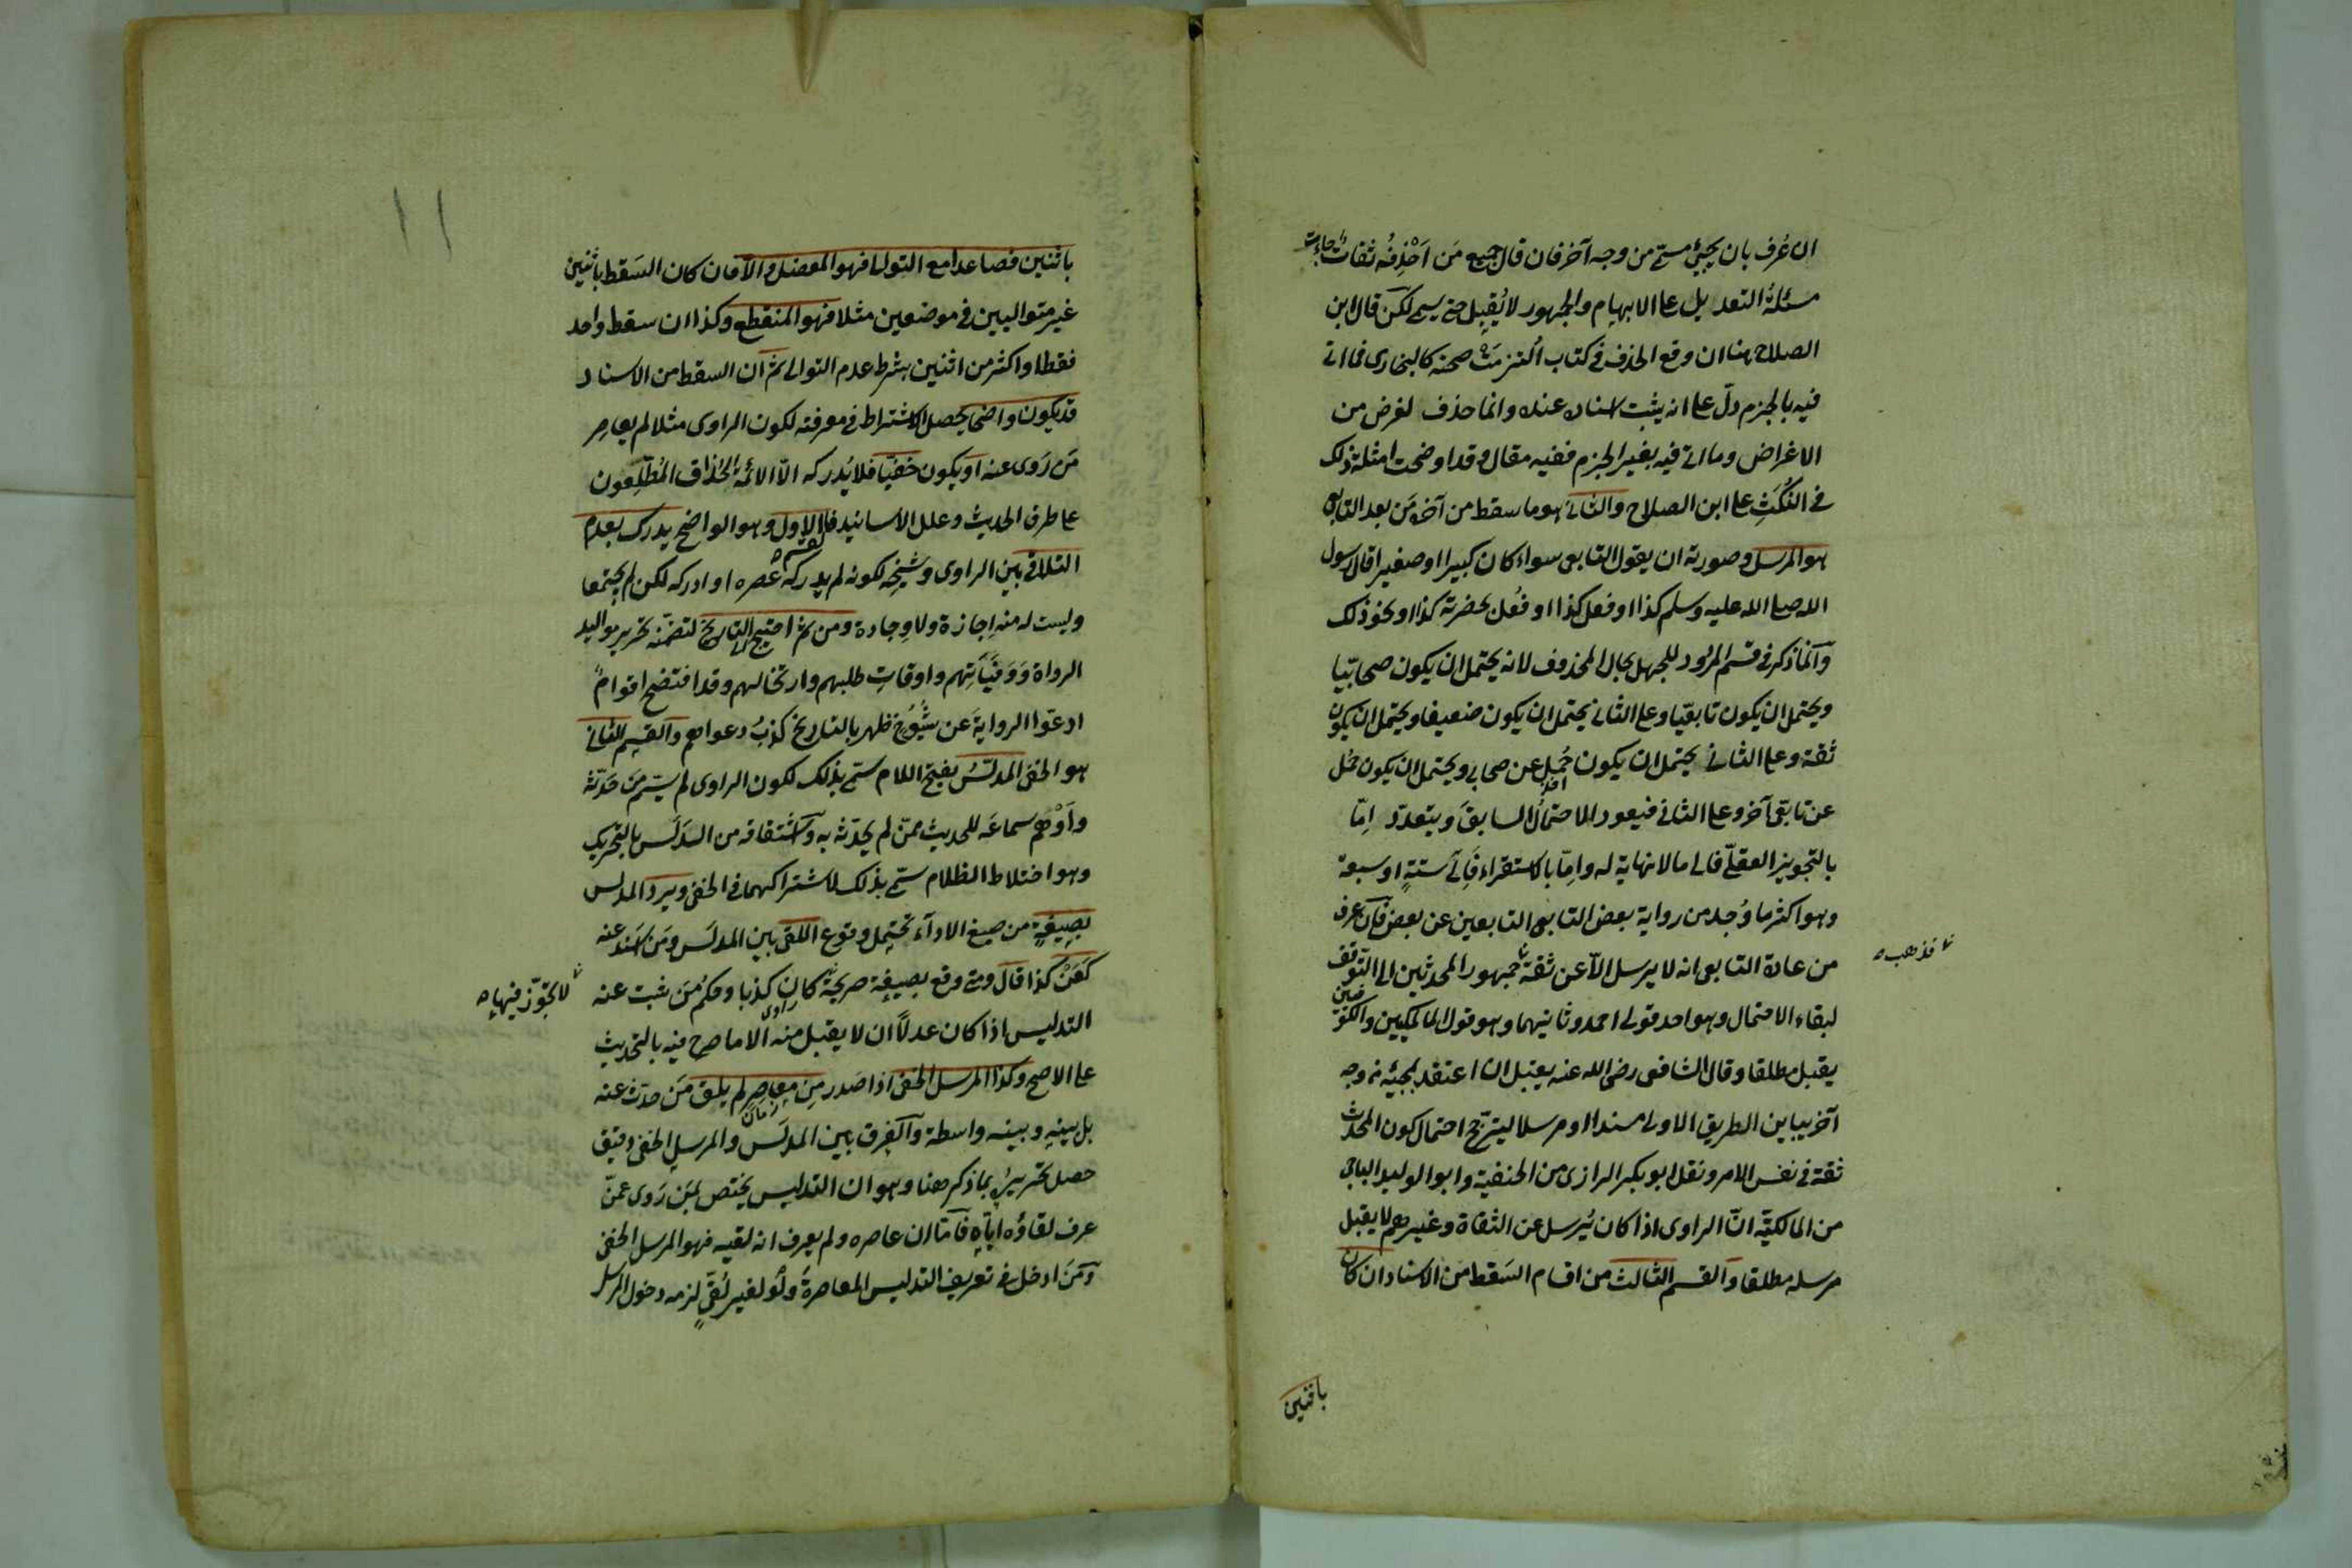 ان عُرف بان يجيئ مسمّى من وجه آخر فان قال جميع مَن اَحْذِفُه ثقات جاءت
مسئلةُ التعديل على الابهام والجمهور لا يُقبل حتى يسمى لكن قال ابن
الصلاح هنا ان وقع الحذف في كتاب اُلتزمَتْ صحته كالبخارى فما اتى
فيه بالجزم دلّ على انه يثبت اسناده عنده وانما حذف لغرض من
الاغراض وما اتى فيه بغير الجزم ففيه مقال وقد اوضحت امثلة ذلك
في النُكَتِ على ابن الصلاح والثانى هو ما سقط من آخره مَن بعد التابعى
هو المرسل وصورته ان يقول التابعى سواء كان كبيرا او صغيرا قال رسول
الله صلى الله عليه وسلم كذا او فعل كذا او فُعل بحضرته كذا او نحو ذلك
وانما ذكر في قسم المردود للجهل بحال المحذوف لانه يحتمل ان يكون صحابيّا
ويحتمل ان يكون تابعيّا وعلى الثانى يحتمل ان يكون ضعيفا ويحتمل ان يكون
ثقة وعلى الثانى يحتمل ان يكون حُمِل عن صحابى ويحتمل ان يكون حمل
عن تابعى آخر وعلى الثانى فيعود الاحتمالُ السابقَ ويتعدد اِمّا
بالتجويز العقلىّ فالى ما لا نهاية له واِمّا بالاستقراء فالى ستةٍ او سبعة
وهو اكثر ما وُجد من رواية بعض التابعى التابعين عن بعض فان عرف
من عادة التابعى انه لا يرسل الاّ عن ثقة جمهور المحدثين الى التوقف
فذهب
لبقاء الاحتمال وهو احد قولى احمد وثانيهما وهو قول المالكيين والكوفيين
يقبل مطلقا وقال الشافعى رضى الله عنه يقبل ان اعتضد بمجيئه من وجه
آخر يباين الطريق الاولى مسندا او مرسلا ليترجّح احتمال كون المحدث
ثقة في نفس الامر ونقل ابو بكر الرازى من الحنفية وابو الوليد الباجى
من المالكيّة انّ الراوى اذا كان يُرسل عن الثقاة وغيرهم لا يقبل
مرسله مطلقا والقسم الثالث من اقسام السَقط من الاسناد ان كان
باثنين
١١
باثنين فصاعدا مع التوالى فهو المعضل والا فان كان السَقط باثنين
غير متواليين في موضعين مثلا فهو المنقطع وكذا ان سقط واحد
فقط او اكثر من اثنين بشرط عدم التوالى ثم ان السقط من الاسناد
قد يكون واضحا يحصل الاشتراط في معرفته لكون الراوى مثلا لم يعاصر
مَن رَوى عنه او يكون خفيّا فلا يُدركه الاّ الائمّةُ الحُذاق المُطّلِعون
على طرق الحديث وعلل الاسانيد فالاول وهو الواضح يدرك بعدم
التلاقى بين الراوى وشيخِه لكونه لم يدركه عصره او ادركه لكن لم يجتمعا
وليست له منه اِجازة ولا وِجادة ومن ثم احتيج الى التاريخ لتضمّنه تحرير مواليد
الرواة ووَفيَاتِهم واوقاتِ طلبهم وارتحالهم وقد افتضح اقوامٌ
ادعوا الروايةَ عن شُيُوخ ظهر بالتاريخ كذبُ دعواهم والقسم الثانى
هو الخفى المدلَّسُ بفتح اللام سمّى بذلك لكون الراوى لم يسمّ مَن حَدّثه
واَوْهَم سماعَه للحديث ممّن لم يحدّثه به واشتقاقه من الدَلَس بالتحريك
وهو اختلاط الظلام سمّى بذلك لاشتراكهما في الخفى ويرد المدلس
بصِيغةٍ من صيغ الادآء تحتمِل وقوع اللقى بين المدلَس ومَن اَسند عنه
كَعَنْ كذا قال ومتى وقع بصِيغة صريحة كان كذبا وحكمُ مَن ثبت عنه
لا تجوّز فيها
التدليس اذا كان عدلاً ان لا يقبل منه الا ما صرح فيه بالتحديث
على الاصح وكذا المرسل الخفى اذا صَدر مِن معاصِر لم يلق مَن حدث عنه
بل بينه وبينه واسطة والفرق بين المدلَس والمرسلِ الخفى دقيق
حصل تحريرُه بما ذكر هنا وهو ان التدليس يختص بمَن رَوى عمّن
عرف لقاؤه اياه فامّا ان عاصره ولم يعرف انه لقيه فهو المرسل الخفى
ومَن ادخل في تعريف التدليس المعاصرةَ ولو لغير لُقىّ لزمه دخول المرسل